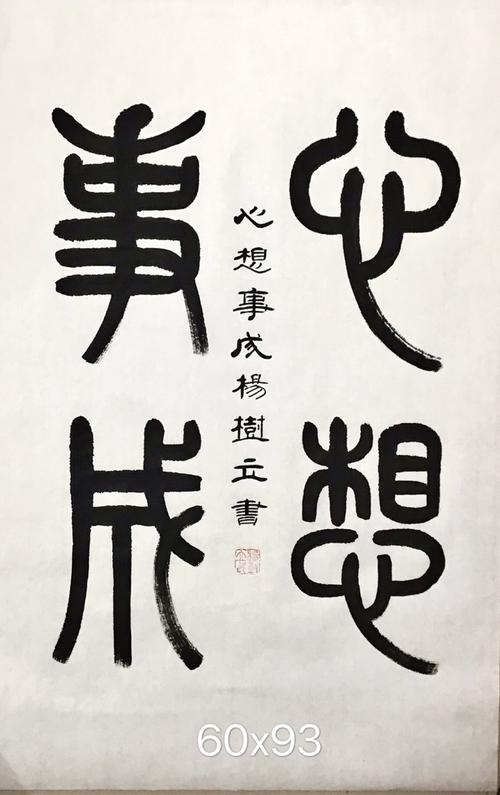 心想
事成
心想事成楊樹立書
60x93